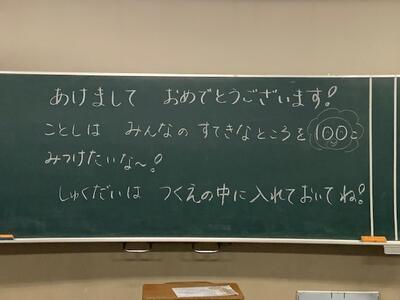 あけまして おめでとうございます!
ことしは みんなの すてきなところを 100こ
みつけたいな〜!
しゅくだいは つくえの中に入れておいてね!